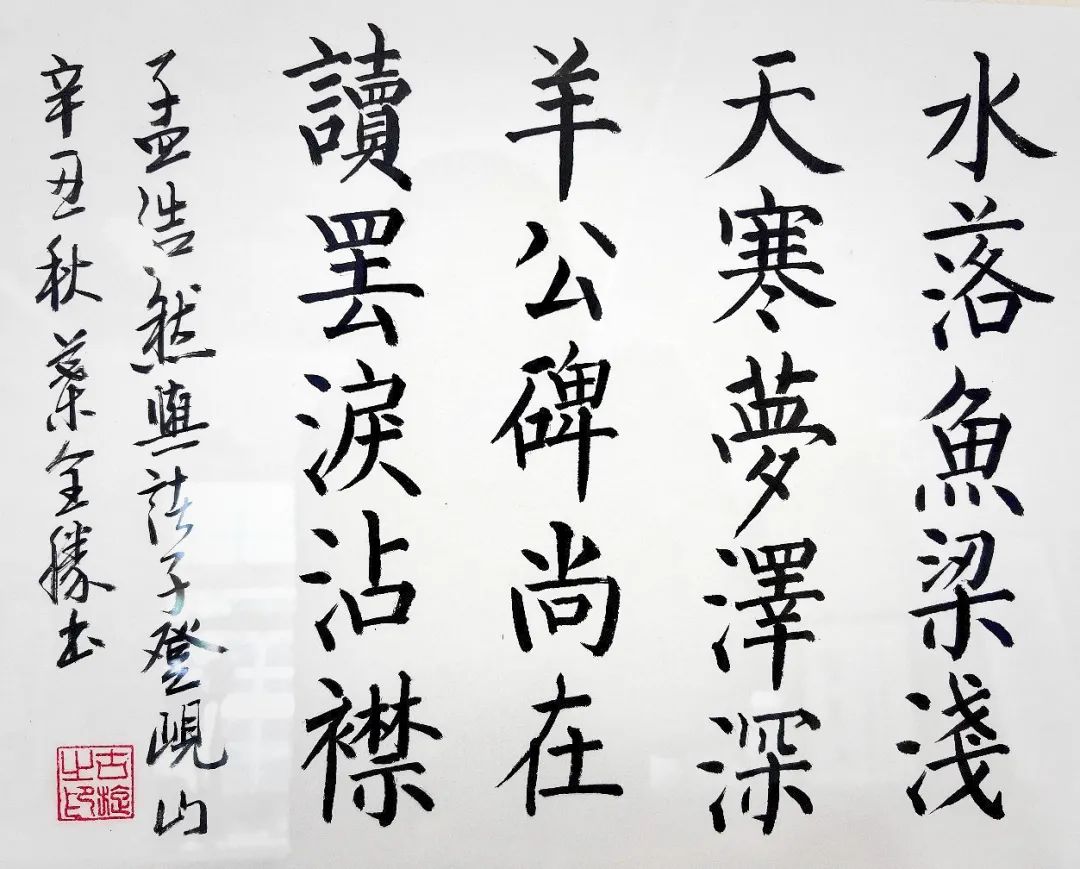 水落魚梁淺
天寒夢澤深
羊公碑尚在
讀罷淚沾襟
孟浩然與諸子登峴山
辛丑秋葉全勝书